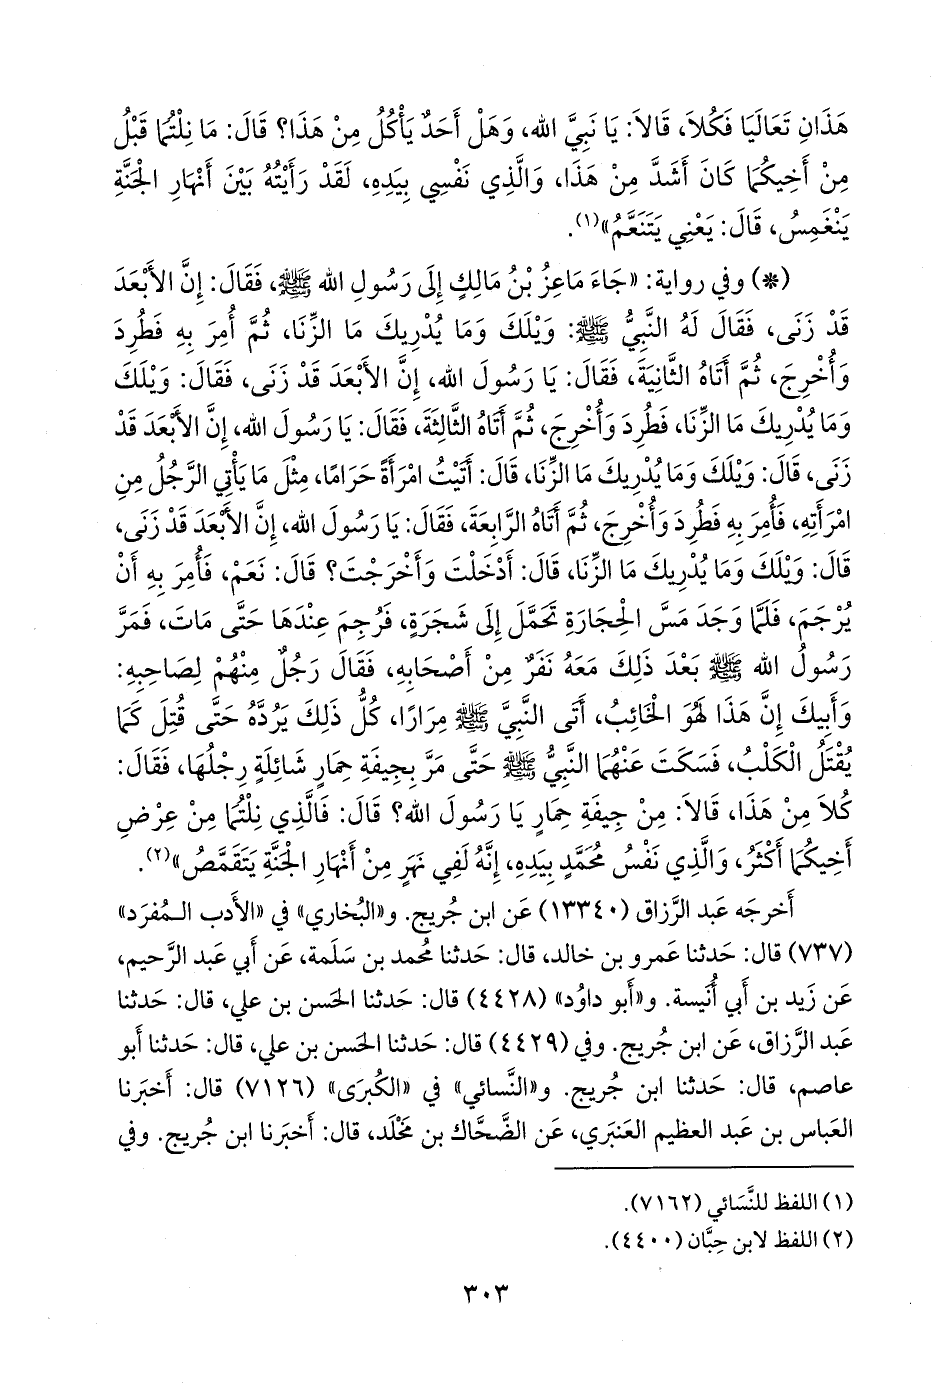 هَذَانِ تَعَالَيَا فَكُلاَ، قَالاَ: يَا نَبِيَّ الله، وَهَلْ أَحَدٌ يَأْكُلُ مِنْ هَذَا؟ قَالَ: مَا نِلْتُمَا قَبْلُ
مِنْ أَخِيكُمَا كَانَ أَشَدَّ مِنْ هَذَا، وَالَّذِي نَفْسِي بِيَدِهِ، لَقَدْ رَأَيْتُهُ بَيْنَ أَنْهَارِ الْجَنَّةِ
يَنْغَمِسُ، قَالَ: يَعْنِي يَتَنَعَّمُ»(١).
(*) وفي رواية: «جَاءَ مَاعِزُ بْنُ مَالِكٍ إِلَى رَسُولِ الله ﷺ، فَقَالَ: إِنَّ الأَبْعَدَ
قَدْ زَنَى، فَقَالَ لَهُ النَّبِيُّ ﷺ: وَيْلَكَ وَمَا يُدْرِيكَ مَا الزِّنَا، ثُمَّ أُمِرَ بِهِ فَطُرِدَ
وَأُخْرِجَ، ثُمَّ أَتَاهُ الثَّانِيَةَ، فَقَالَ: يَا رَسُولَ الله، إِنَّ الأَبْعَدَ قَدْ زَنَى، فَقَالَ: وَيْلَكَ
وَمَا يُدْرِيكَ مَا الزِّنَا، فَطُرِدَ وَأُخْرِجَ، ثُمَّ أَتَاهُ الثَّالِثَةَ، فَقَالَ: يَا رَسُولَ الله، إِنَّ الأَبْعَدَ قَدْ
زَنَى، قَالَ: وَيْلَكَ وَمَا يُدْرِيكَ مَا الزِّنَا، قَالَ: أَتَيْتُ امْرَأَةً حَرَامًا، مِثْلَ مَا يَأْتِي الرَّجُلُ مِنِ
امْرَأَتِهِ، فَأُمِرَ بِهِ فَطُرِدَ وَأُخْرِجَ، ثُمَّ أَتَاهُ الرَّابِعَةَ، فَقَالَ: يَا رَسُولَ الله، إِنَّ الأَبْعَدَ قَدْ زَنَى،
قَالَ: وَيْلَكَ وَمَا يُدْرِيكَ مَا الزِّنَا، قَالَ: أَدْخَلْتَ وَأَخْرَجْتَ؟ قَالَ: نَعَمْ، فَأُمِرَ بِهِ أَنْ
يُرْجَمَ، فَلَمَّا وَجَدَ مَسَّ الْحِجَارَةِ تَحَمَّلَ إِلَى شَجَرَةٍ، فَرُجِمَ عِنْدَهَا حَتَّى مَاتَ، فَمَرَّ
رَسُولُ الله ﷺ بَعْدَ ذَلِكَ مَعَهُ نَفَرٌ مِنْ أَصْحَابِهِ، فَقَالَ رَجُلٌ مِنْهُمْ لِصَاحِبِهِ:
وَأَبِيكَ إِنَّ هَذَا لَهُوَ الْخَائِبُ، أَتَى النَّبِيَّ ﷺ مِرَارًا، كُلُّ ذَلِكَ يَرُدُّهُ حَتَّى قُتِلَ كَمَا
يُقْتَلُ الْكَلْبُ، فَسَكَتَ عَنْهُمَا النَّبِيُّ ﷺ حَتَّى مَرَّ بِجِيفَةِ حِمَارٍ شَائِلَةٍ رِجْلُهَا، فَقَالَ:
كُلاَ مِنْ هَذَا، قَالاَ: مِنْ جِيفَةِ حِمَارٍ يَا رَسُولَ الله؟ قَالَ: فَالَّذِي نِلْتُمَا مِنْ عِرْضِ
أَخِيكُمَا أَكْثَرُ، وَالَّذِي نَفْسُ مُحَمَّدٍ بِيَدِهِ، إِنَّهُ لَفِي نَهَرٍ مِنْ أَنْهَارِ الْجَنَّةِ يَتَقَمَّصُ»(٢).
أخرجَه عَبد الرَّزاق (١٣٣٤٠) عَن ابن جُريج. و«البُخاري» في «الأَدب الـمُفرَد»
(٧٣٧) قال: حَدثنا عَمرو بن خالد، قال: حَدثنا مُحمد بن سَلَمة، عَن أَبي عَبد الرحيم،
عَن زَيد بن أَبي أُنَيسة. و«أَبو داوُد» (٤٤٢٨) قال: حَدثنا الحَسن بن علي، قال: حَدثنا
عَبد الرَّزاق، عَن ابن جُريج. وفي (٤٤٢٩) قال: حَدثنا الحَسن بن علي، قال: حَدثنا أَبو
عاصم، قال: حَدثنا ابن جُريج. و«النَّسائي» في «الكُبرَى» (٧١٢٦) قال: أَخبَرنا
العَباس بن عَبد العظيم العَنبَري، عَن الضَّحاك بن مَخْلَد، قال: أَخبَرنا ابن جُريج. وفي
(١) اللفظ للنَّسَائي (٧١٦٢).
(٢) اللفظ لابن حِبَّان (٤٤٠٠).
٣٠٣